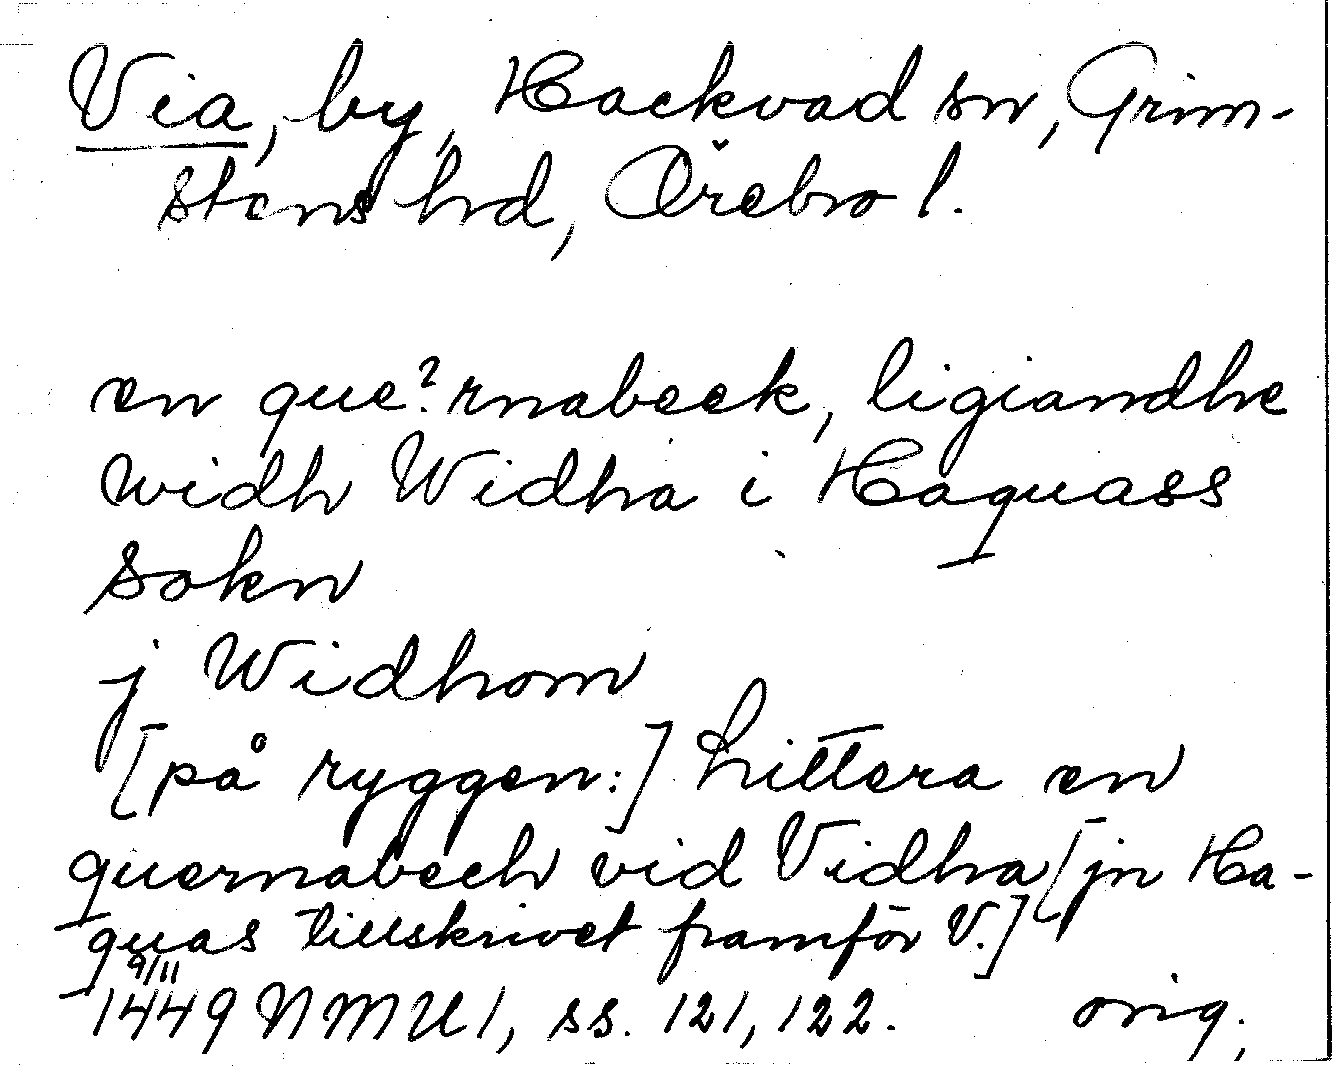 Via, by, Hackvad sn, Grim-
stens hd, Örebro l.
en que?rnabeck, ligiandhe
widh Widha i Haquass
sokn
j Widhom
[på ryggen:] Littera en
quernabech vid Vidha [jn Ha-
quas tillskrivet framför V.]
9/11
1449 NMU 1, ss. 121, 122. orig.;